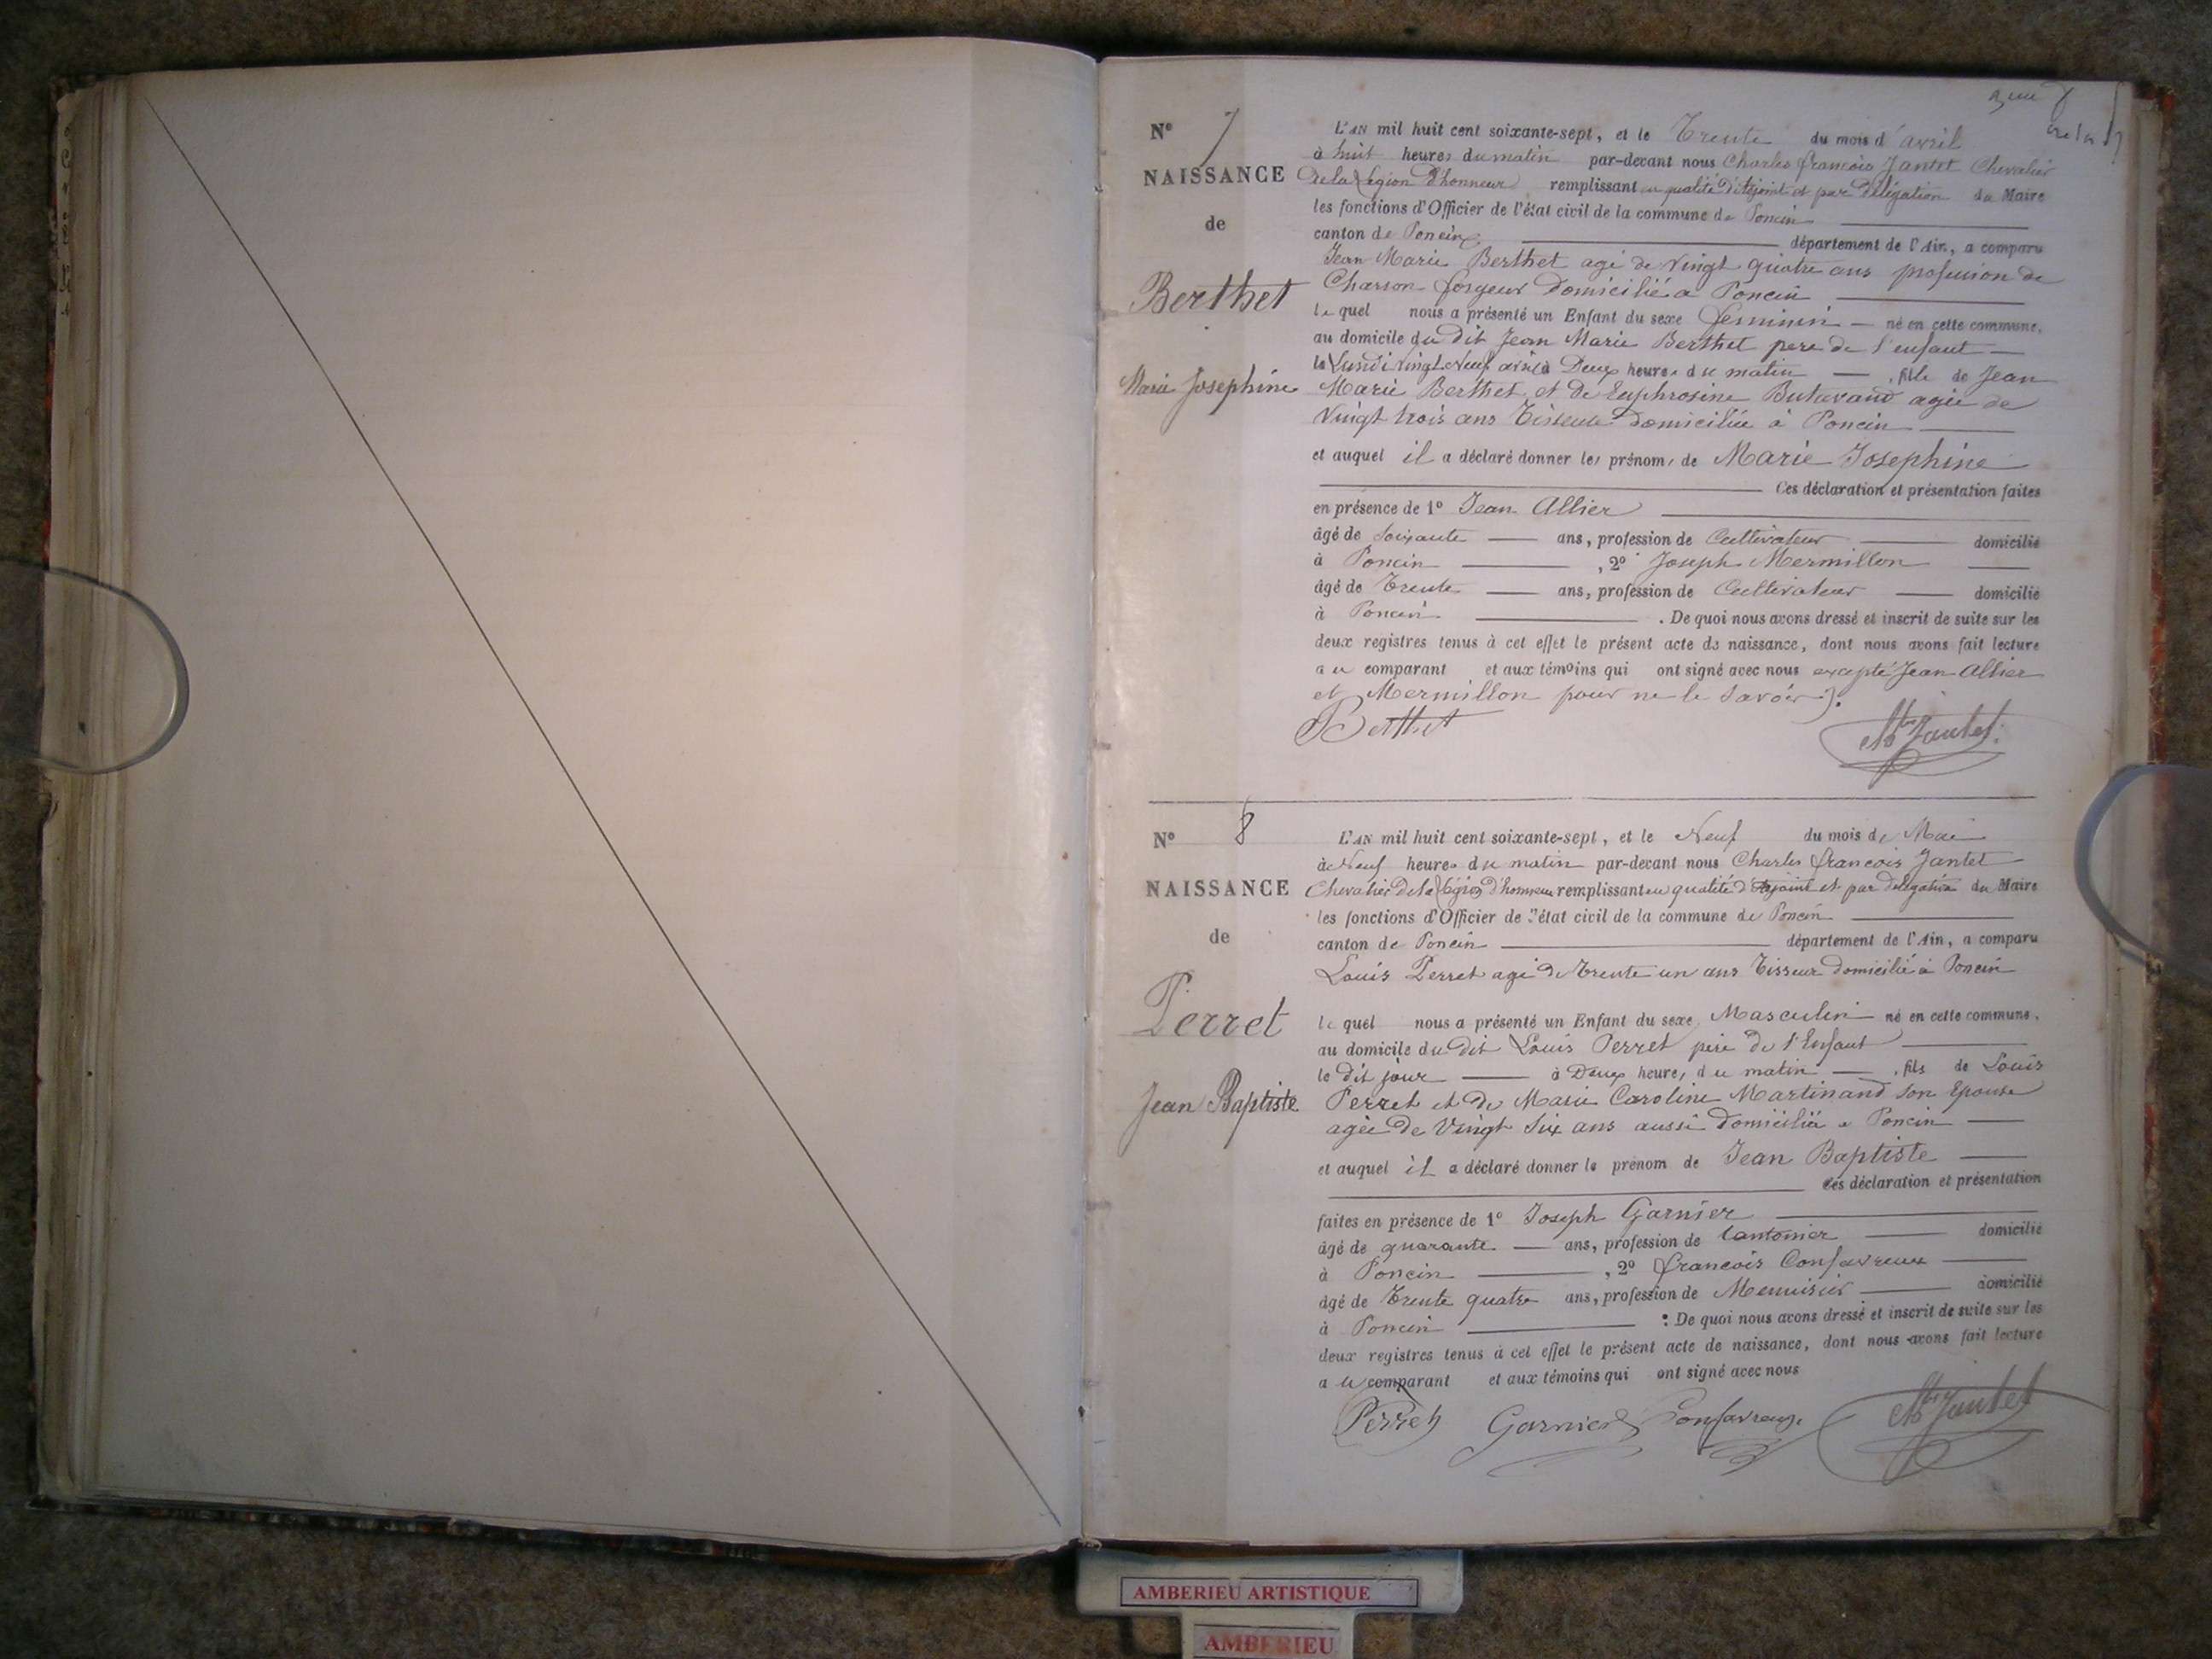 N° 7
NAISSANCE
de
Berthet
Marie Josephine
L'AN mil huit cent soixante-sept, et le Trente du mois d'avril
à huit heures du matin par-devant nous Charles francois Jantet Chevalier
de la Légion d'honneur remplissant en qualité d'Adjoint et par délégation du Maire
les fonctions d'Officier de l'état civil de la commune de Poncin
canton de Poncin département de l'Ain, a comparu
Jean Marie Berthet agé de Vingt quatre ans profession de
Charron forgeur domicilié à Poncin
lequel nous a présenté un Enfant du sexe feminin né en cette commune,
au domicile du dit Jean Marie Berthet pere de l'enfant
le Lundi vingt neuf avril à Deux heures du matin, fille de Jean
Marie Berthet et de Euphrosine Butavand agée de
Vingt trois ans Tisseuse domiciliée à Poncin
et auquel il a déclaré donner les prénoms de Marie Josephine
Ces déclaration et présentation faites
en présence de 1° Jean Allier
âgé de Soixante ans, profession de Cultivateur domicilié
à Poncin, 2° Joseph Mermillon
âgé de Trente ans, profession de Cultivateur domicilié
à Poncin. De quoi nous avons dressé et inscrit de suite sur les
deux registres tenus à cet effet le présent acte de naissance, dont nous avons fait lecture
au comparant et aux témoins qui ont signé avec nous excepté Jean Allier
et Mermillon pour ne le savoir.
Berthet Jantet
N° 8
NAISSANCE
de
Perret
Jean Baptiste
L'AN mil huit cent soixante-sept, et le Neuf du mois de Mai
à Neuf heures du matin par-devant nous Charles francois Jantet
Chevalier de la Légion d'honneur remplissant en qualité d'Adjoint et par délégation du Maire
les fonctions d'Officier de l'état civil de la commune de Poncin
canton de Poncin département de l'Ain, a comparu
Louis Perret agé de Trente un ans Tisseur domicilié à Poncin
lequel nous a présenté un Enfant du sexe Masculin né en cette commune,
au domicile du dit Louis Perret père de l'Enfant
le dit jour à Deux heures du matin, fils de Louis
Perret et de Marie Caroline Martinand son Epouse
agée de Vingt Six ans aussi domiciliée à Poncin
et auquel il a déclaré donner le prénom de Jean Baptiste
Ces déclaration et présentation
faites en présence de 1° Joseph Garnier
âgé de quarante ans, profession de Cantonier domicilié
à Poncin, 2° francois Confavreux
âgé de Trente quatre ans, profession de Menuisier domicilié
à Poncin : De quoi nous avons dressé et inscrit de suite sur les
deux registres tenus à cet effet le présent acte de naissance, dont nous avons fait lecture
au comparant et aux témoins qui ont signé avec nous
Perret Garnier Confavreux Jantet
AMBERIEU ARTISTIQUE
AMBERIEU